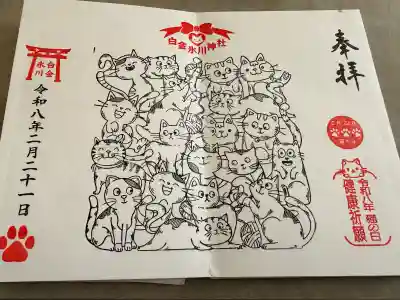 奉拝
白金氷川神社
白金
氷川
令和八年二月二十一日
令和八年 猫の日
健康祈願